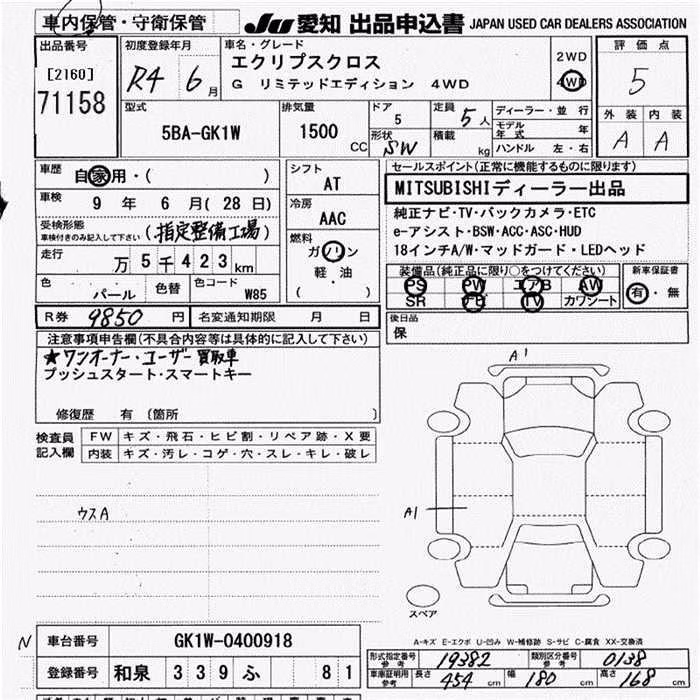 車内保管・守衛保管
JU 愛知 出品申込書 JAPAN USED CAR DEALERS ASSOCIATION
出品番号
[2160]
71158
初度登録年月
R4 6月
車名・グレード
エクリプスクロス
G リミテッドエディション 4WD
2WD
4WD
評価点
5
外装 内装
A A
型式
5BA-GK1W
排気量
1500 CC
ドア
5
形状
SW
定員
5人
積載
kg
ディーラー・並行
モデル年式 年
ハンドル 左・右
車歴
自家用・( )
車検
9年 6月(28日)
受検形態
車検付きのみ記入して下さい
(指定整備工場)
走行
万5千423km
色
パール
色替
色コード
W85
シフト
AT
冷房
AAC
燃料
ガソリン
軽・油
( )
セールスポイント(正常に機能するものに限ります)
MITSUBISHIディーラー出品
純正ナビ・TV・バックカメラ・ETC
e-アシスト・BSW・ACC・ASC・HUD
18インチA/W・マッドガード・LEDヘッド
装備品(純正品に限り○をつけてください)
PS PW エアB AW
SR ナビ TV カワシート
新車保証書
有・無
R券 9850円
名変通知期限 月 日
後日品
保
注意事項申告欄(不具合内容等は具体的に記入して下さい)
★ワンオーナー・ユーザー買取車
プッシュスタート・スマートキー
修復歴 有 〔箇所 〕
検査員
記入欄
FW キズ・飛石・ヒビ割・リペア跡・X要
内装 キズ・汚レ・コゲ・穴・スレ・キレ・破レ
ウスA
A1
A1
スペア
A-キズ E-エクボ U-凹み W-補修跡 S-サビ C-腐食 XX-交換済
N
車台番号 GK1W-0400918
登録番号 和泉 339 ふ 81
形式指定番号
参考
19382
類別区分番号
参考
0138
車庫証明用
参考
長さ 454cm 幅 180cm 高さ 168cm